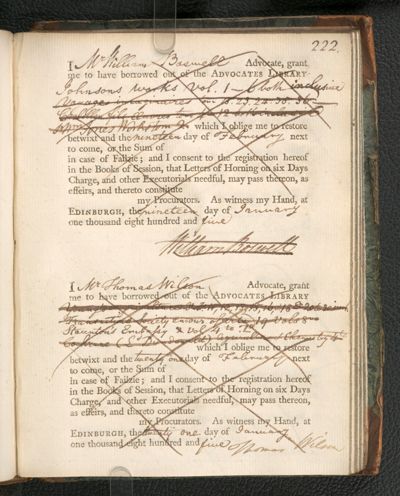 222.
I Mr William Boswell Advocate, grant
me to have borrowed out of the ADVOCATES LIBRARY
Johnsons works vol. 1 – 6 both inclusive
which I oblige me to restore
betwixt and the nineteen day of February next
to come, or the Sum of
in case of Failzie; and I consent to the registration hereof
in the Books of Session, that Letters of Horning on six Days
Charge, and other Executorials needful, may pass thereon, as
effeirs, and thereto constitute
my Procurators. As witness my Hand, at
EDINBURGH, the nineteen day of January
one thousand eight hundred and five
William Boswell
I Mr Thomas Wilson Advocate, grant
me to have borrowed out of the ADVOCATES LIBRARY
Staunton's Embassy
which I oblige me to restore
betwixt and the twenty one day of February next
to come, or the Sum of
in case of Failzie; and I consent to the registration hereof
in the Books of Session, that Letters of Horning on six Days
Charge, and other Executorials needful, may pass thereon,
as effeirs, and thereto constitute
my Procurators. As witness my Hand, at
EDINBURGH, the twenty one day of January
one thousand eight hundred and five Thomas Wilson